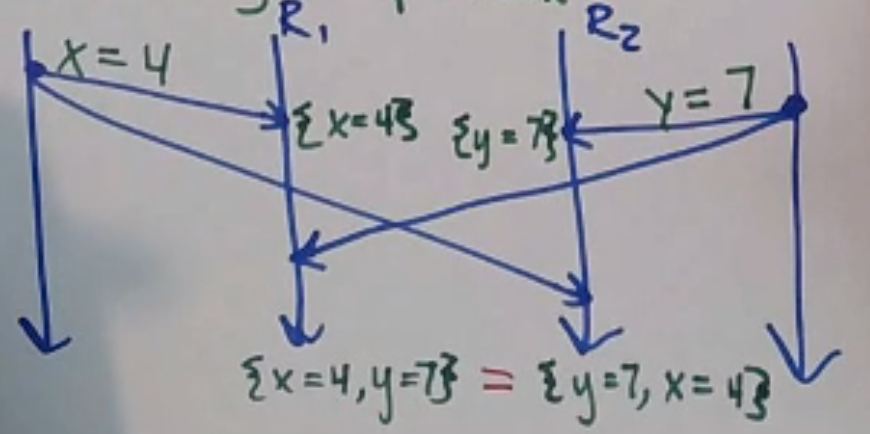 R₁ R₂
x = 4
y = 7
{x=4}
{y=7}
{x=4, y=7} = {y=7, x=4}